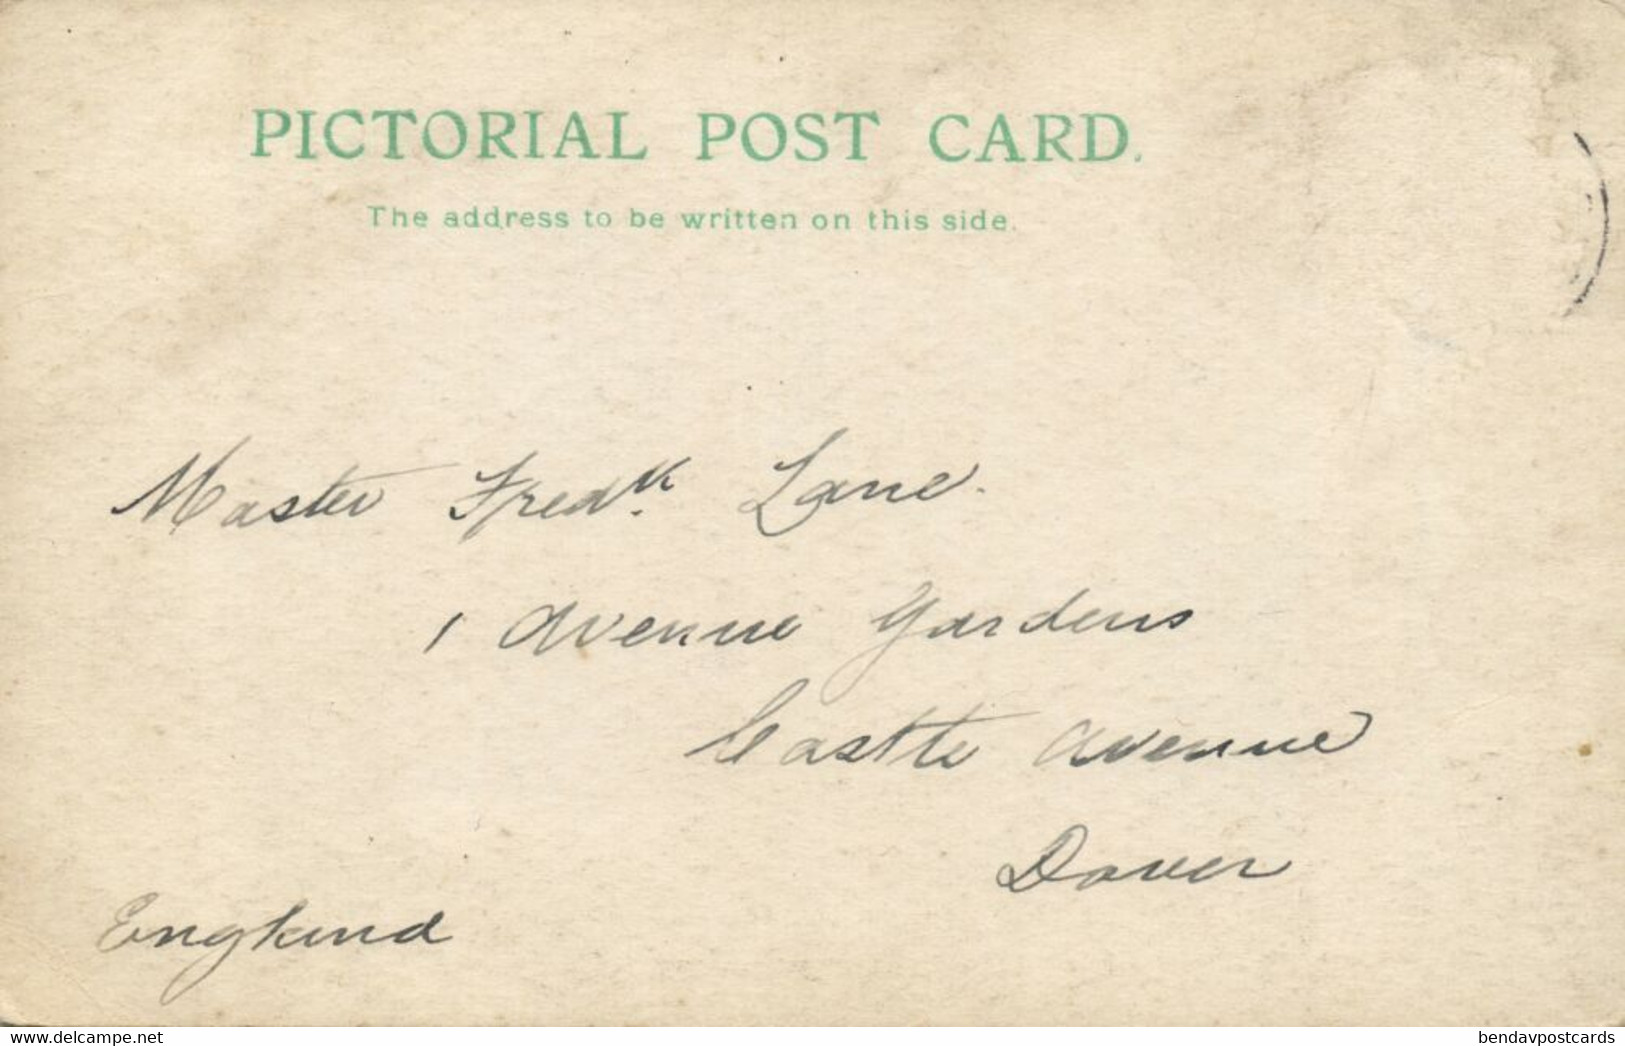 PICTORIAL POST CARD.
The address to be written on this side.
Master Fredk. Lane.
1 Avenue Gardens
Castle Avenue
Dover
England
www.delcampe.net
bendavpostcards